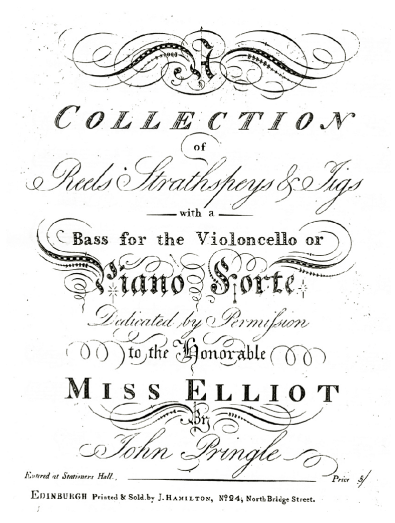 A
COLLECTION
of
Reels Strathspeys & Jigs
with a
Bass for the Violoncello or
Piano Forte
Dedicated by Permiſsion
to the Honorable
MISS ELLIOT
By
John Pringle
Entered at Stationers Hall. Price 5/
EDINBURGH Printed & Sold by J. HAMILTON, Nº 24, North Bridge Street.